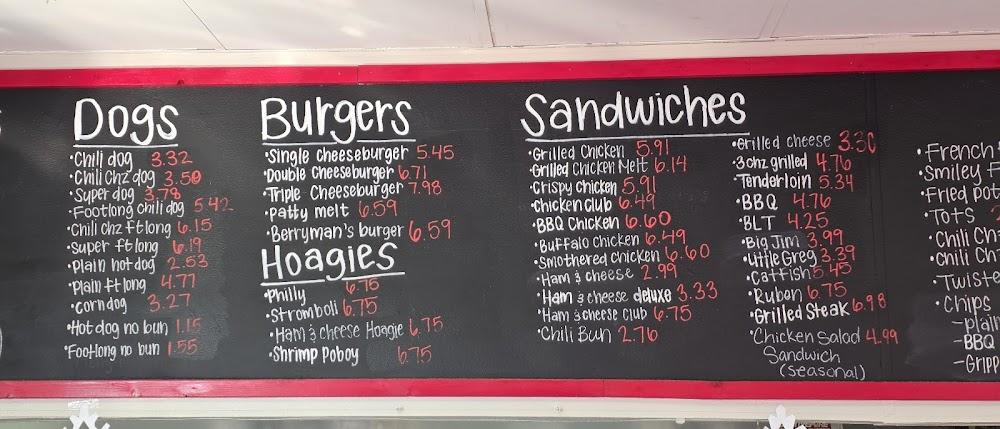 Dogs
•Chili dog 3.32
•Chili Chz dog 3.50
•Super dog 3.78
•Footlong chili dog 5.42
•Chili chz ftlong 6.15
•Super ftlong 6.19
•Plain hot dog 2.53
•Plain ftlong 4.77
•corn dog 3.27
•Hot dog no bun 1.15
•Footlong no bun 1.55
Burgers
•Single Cheeseburger 5.45
•Double Cheeseburger 6.71
•Triple Cheeseburger 7.98
•Patty melt 6.59
•Berryman's burger 6.59
Hoagies
•Philly 6.75
•Stromboli 6.75
•Ham & Cheese Hoagie 6.75
•Shrimp Poboy 6.75
Sandwiches
•Grilled Chicken 5.91
•Grilled Chicken Melt 6.14
•Crispy Chicken 5.91
•Chicken Club 6.49
•BBQ Chicken 6.60
•Buffalo Chicken 6.49
•Smothered Chicken 6.60
•Ham & Cheese 2.99
•Ham & cheese deluxe 3.33
•Ham & cheese Club 6.75
•Chili Bun 2.76
•Grilled cheese 3.30
•3 chz grilled 4.76
•Tenderloin 5.34
•BBQ 4.76
•BLT 4.25
•Big Jim 3.99
•Little Greg 3.39
•Catfish 5.45
•Ruben 6.75
•Grilled Steak 6.98
•Chicken Salad 4.99
Sandwich
(seasonal)
•French
•Smiley
•Fried
•Tots
•Chili
•Chili
•Chips
-BBQ